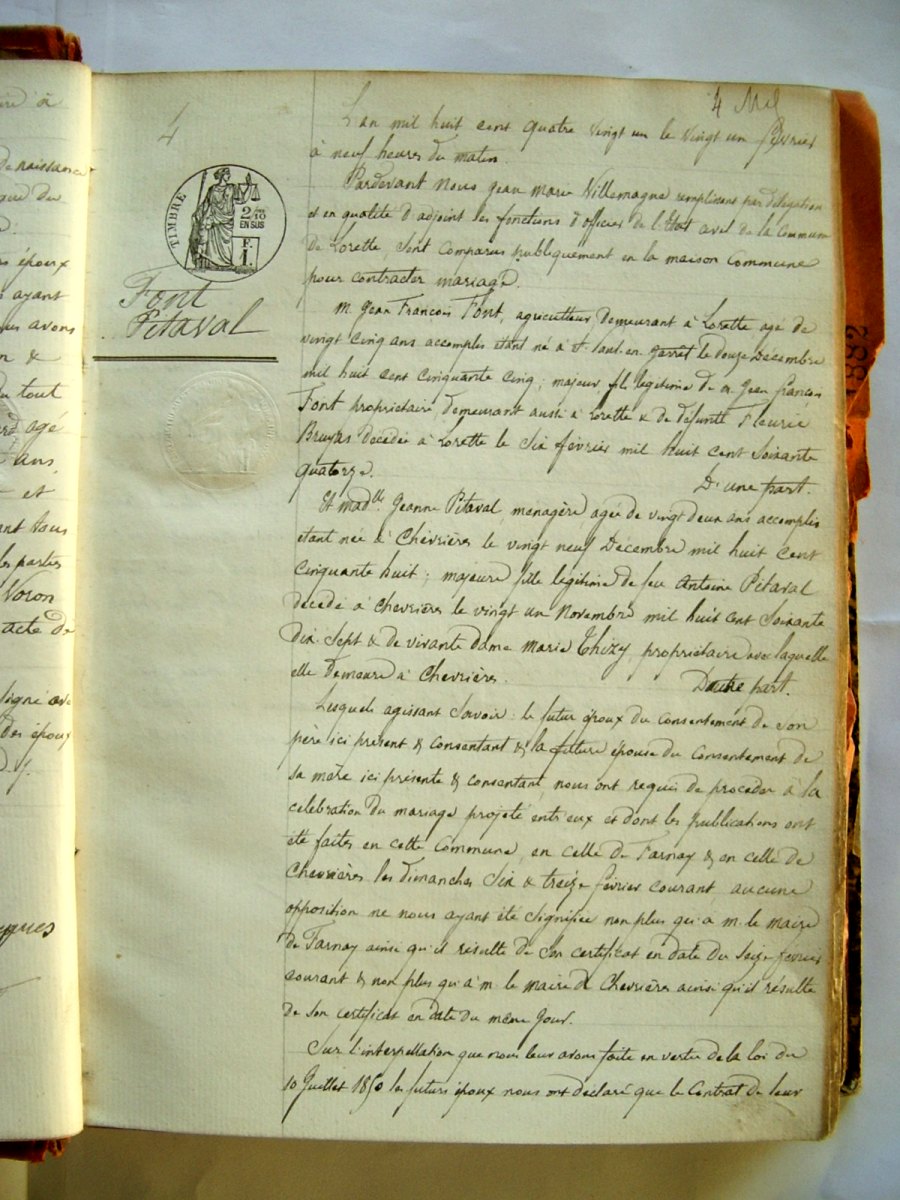 4 Mil
4
TIMBRE
2/10
EN SUS
F.
1.
Font
Pitaval
L'an mil huit cent quatre vingt un le vingt un février
à neuf heures du matin.
Pardevant nous Jean Marie Villemagne remplissant par délégation
et en qualité d'adjoint les fonctions d'officier de l'Etat civil de la Commune
de Lorette, sont comparus publiquement en la maison commune
pour contracter mariage.
M. Jean François Font, agriculteur, demeurant à Lorette agé de
vingt cinq ans accomplis étant né à St Paul en Jarrêt le douze Décembre
mil huit cent cinquante cinq; majeur, fils légitime de M. Jean François
Font propriétaire, demeurant aussi à Lorette & de défunte Fleurie
Bruyas décédée à Lorette le six février mil huit cent soixante
quatorze. D'une part.
Et Madlle Jeanne Pitaval, ménagère, agée de vingt deux ans accomplis
étant née à Chevrières le vingt neuf Décembre mil huit cent
cinquante huit; majeure fille légitime de feu Antoine Pitaval
décédé à Chevrières le vingt un Novembre mil huit cent soixante
dix sept & de vivante dame Marie Thizy, propriétaire avec laquelle
elle demeure à Chevrières. D'autre part.
Lesquels agissant savoir: le futur époux du consentement de son
père ici présent & consentant & la future épouse du consentement de
sa mère ici présente & consentant, nous ont requis de procéder à la
célébration du mariage projeté entr'eux et dont les publications ont
été faites en cette commune, en celle de Farnay & en celle de
Chevrières les dimanches six & treize février courant, aucune
opposition ne nous ayant été signifiée non plus qu'à M. le maire
de Farnay ainsi qu'il résulte de son certificat en date du seize février
courant & non plus qu'à M. le maire de Chevrières ainsi qu'il résulte
de son certificat en date du même jour.
Sur l'interpellation que nous leur avons faite en vertu de la loi du
10 Juillet 1850 les futurs époux nous ont déclaré que le contrat de leur
de naissance
époux
ayant
avons
du tout
agé
ans
et
les parties
Voron
acte de
signé avec
des époux
1882